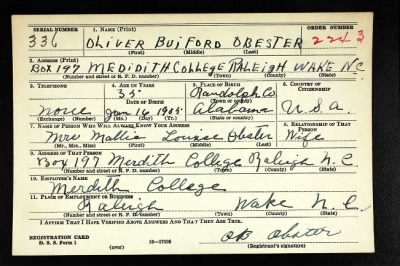 SERIAL NUMBER 1. NAME (Print) ORDER NUMBER
336 OLIVER BUIFORD OBESTER 2243
(First) (Middle) (Last)
2. ADDRESS (Print)
BOX 197 MEDIDITH COLLEGE RALEIGH WAKE N.C.
(Number and street or R. F. D. number) (Town) (County) (State)
3. TELEPHONE 4. AGE IN YEARS 5. PLACE OF BIRTH 6. COUNTRY OF CITIZENSHIP
35 Randolph Co
DATE OF BIRTH (Town or county)
None Jan 16 1905 Alabama U.S.A.
(Exchange) (No.) (Mo.) (Day) (Yr.) (State or country)
7. NAME OF PERSON WHO WILL ALWAYS KNOW YOUR ADDRESS 8. RELATIONSHIP OF THAT PERSON
Mrs Mattie Louise Obster Wife
(Mr., Mrs., Miss) (First) (Middle) (Last)
9. ADDRESS OF THAT PERSON
Box 197 Merdith College Raleigh N.C
(Number and street or R. F. D. number) (Town) (County) (State)
10. EMPLOYER'S NAME
Merdith College
11. PLACE OF EMPLOYMENT OR BUSINESS
Raleigh Wake N.C.
(Number and street or R. F. D. number) (Town) (County) (State)
I AFFIRM THAT I HAVE VERIFIED ABOVE ANSWERS AND THAT THEY ARE TRUE.
REGISTRATION CARD
D. S. S. Form 1 (over) 16-17105 OB Obster
(Registrant's signature)